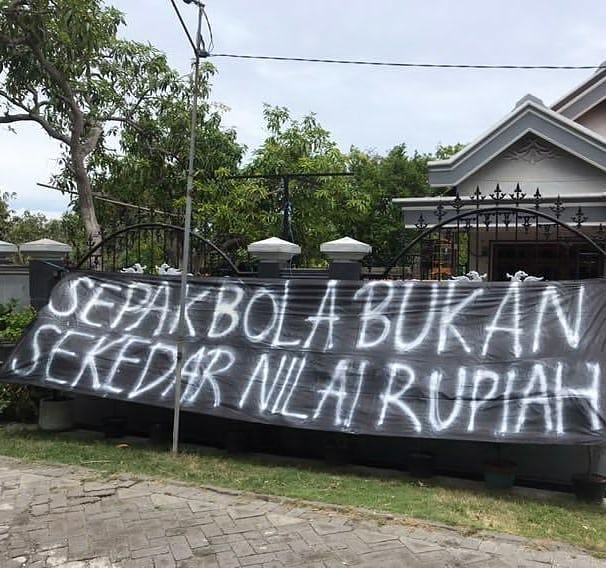 SEPAKBOLA BUKAN
SEKEDAR NILAI RUPIAH